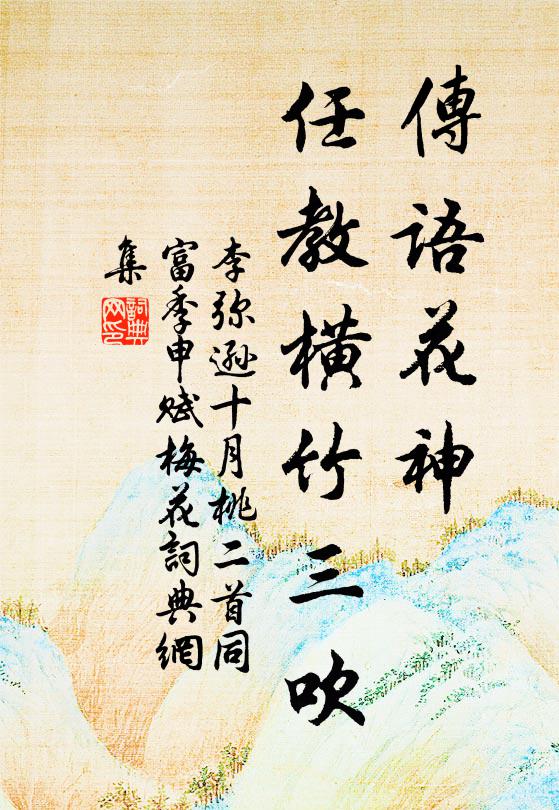 傳語花神
任教橫竹三吹
李弥遜十月桃二首同
富季申賦梅花詞典網
集
詞典
网印